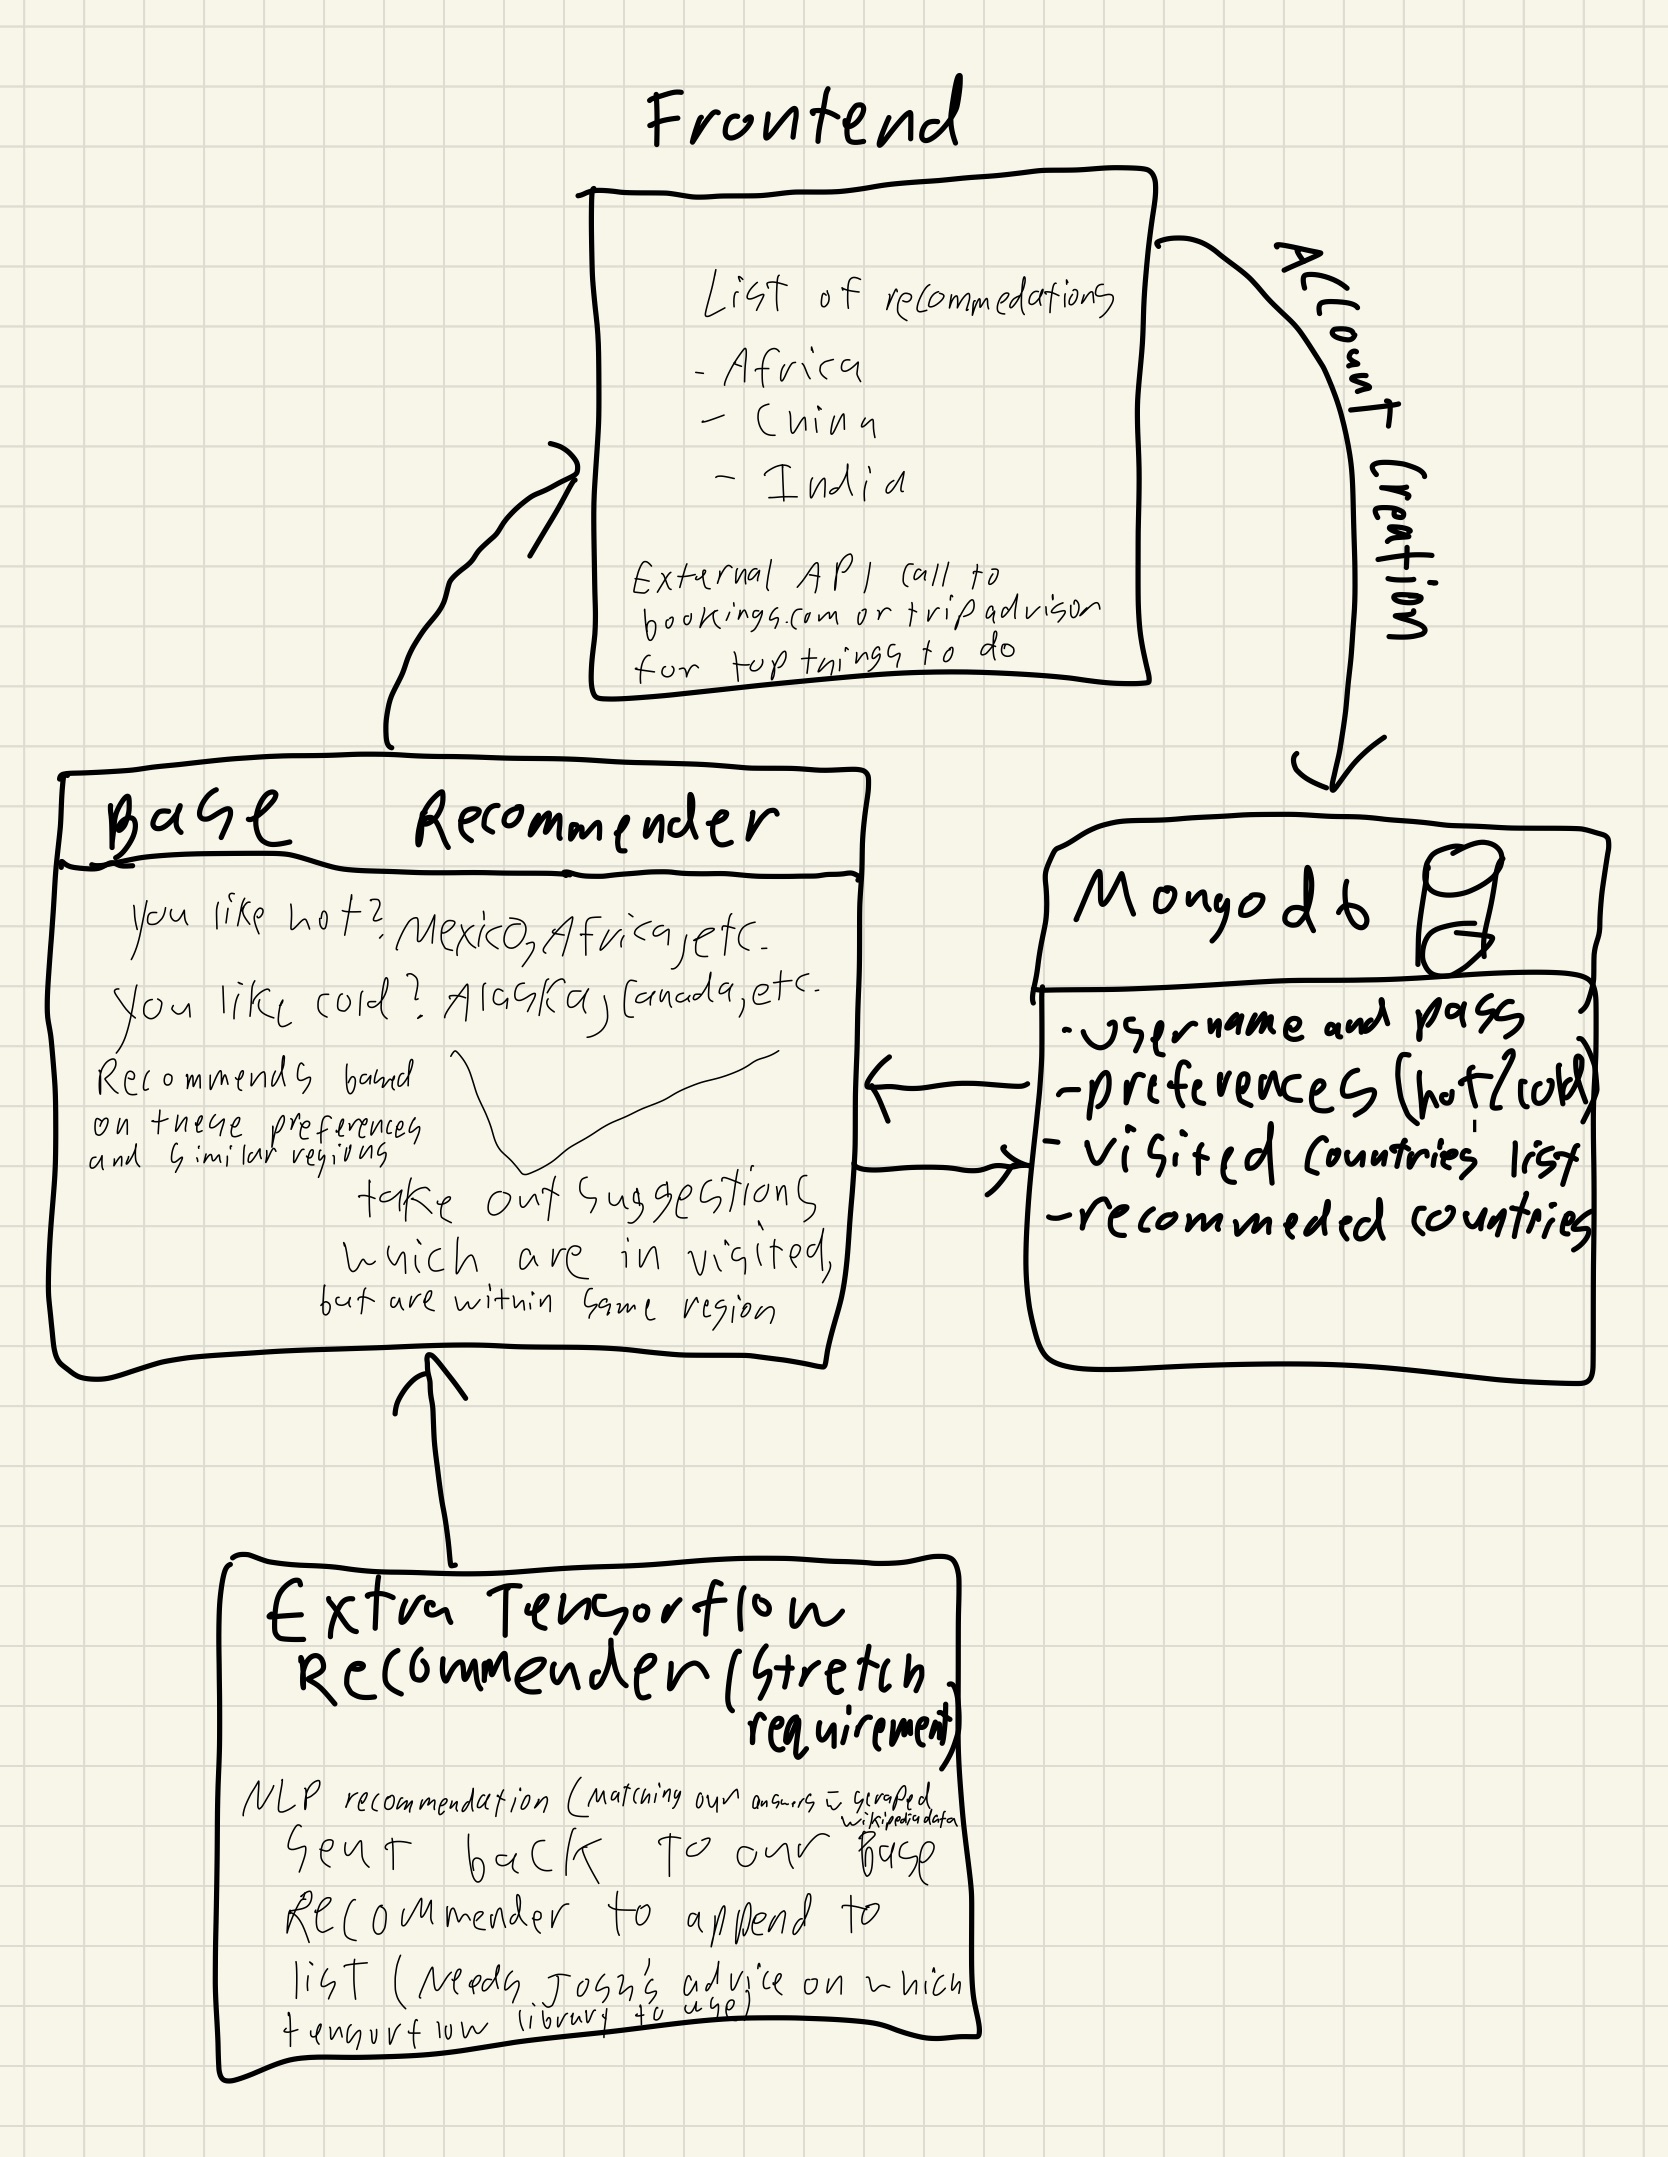 Frontend
List of recommedations
- Africa
- China
- India
External API call to
bookings.com or tripadvisor
for top things to do
Account Creation
Base Recommender
you like hot? Mexico, Africa, etc.
you like cold? Alaska, Canada, etc.
Recommends based
on these preferences
and similar regions
take out suggestions
which are in visited,
but are within same region
Mongodb
- username and pass
- preferences (hot/cold)
- visited countries' list
- recommeded countries
Extra Tensorflow
Recommender (stretch
requirement)
NLP recommendation (Matching our answers w scraped
wikipedia data
sent back to our Base
Recommender to append to
list (Needs Josh's advice on which
tensorflow library to use)